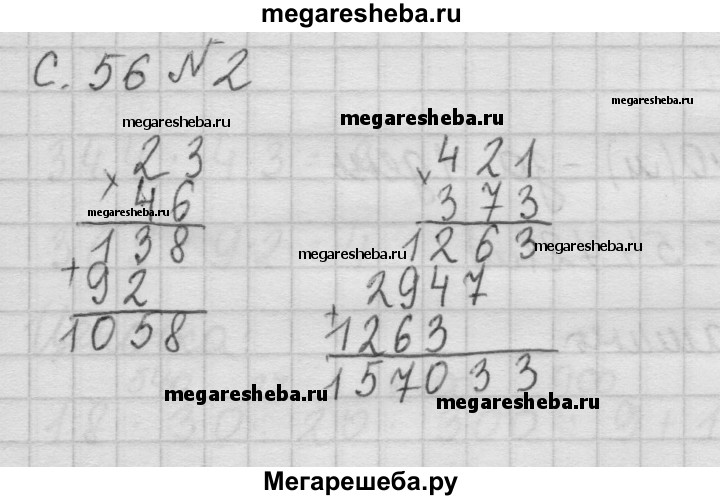 megaresheba.ru
С. 56 № 2
megaresheba.ru
megaresheba.ru
megaresheba.ru
× 23
46
megaresheba.ru
138
+
92
1058
× 421
373
1263
megaresheba.ru
megaresheba.ru
2947
+
1263
157033
megaresheba.ru
megaresheba.ru
Мегарешеба.ру